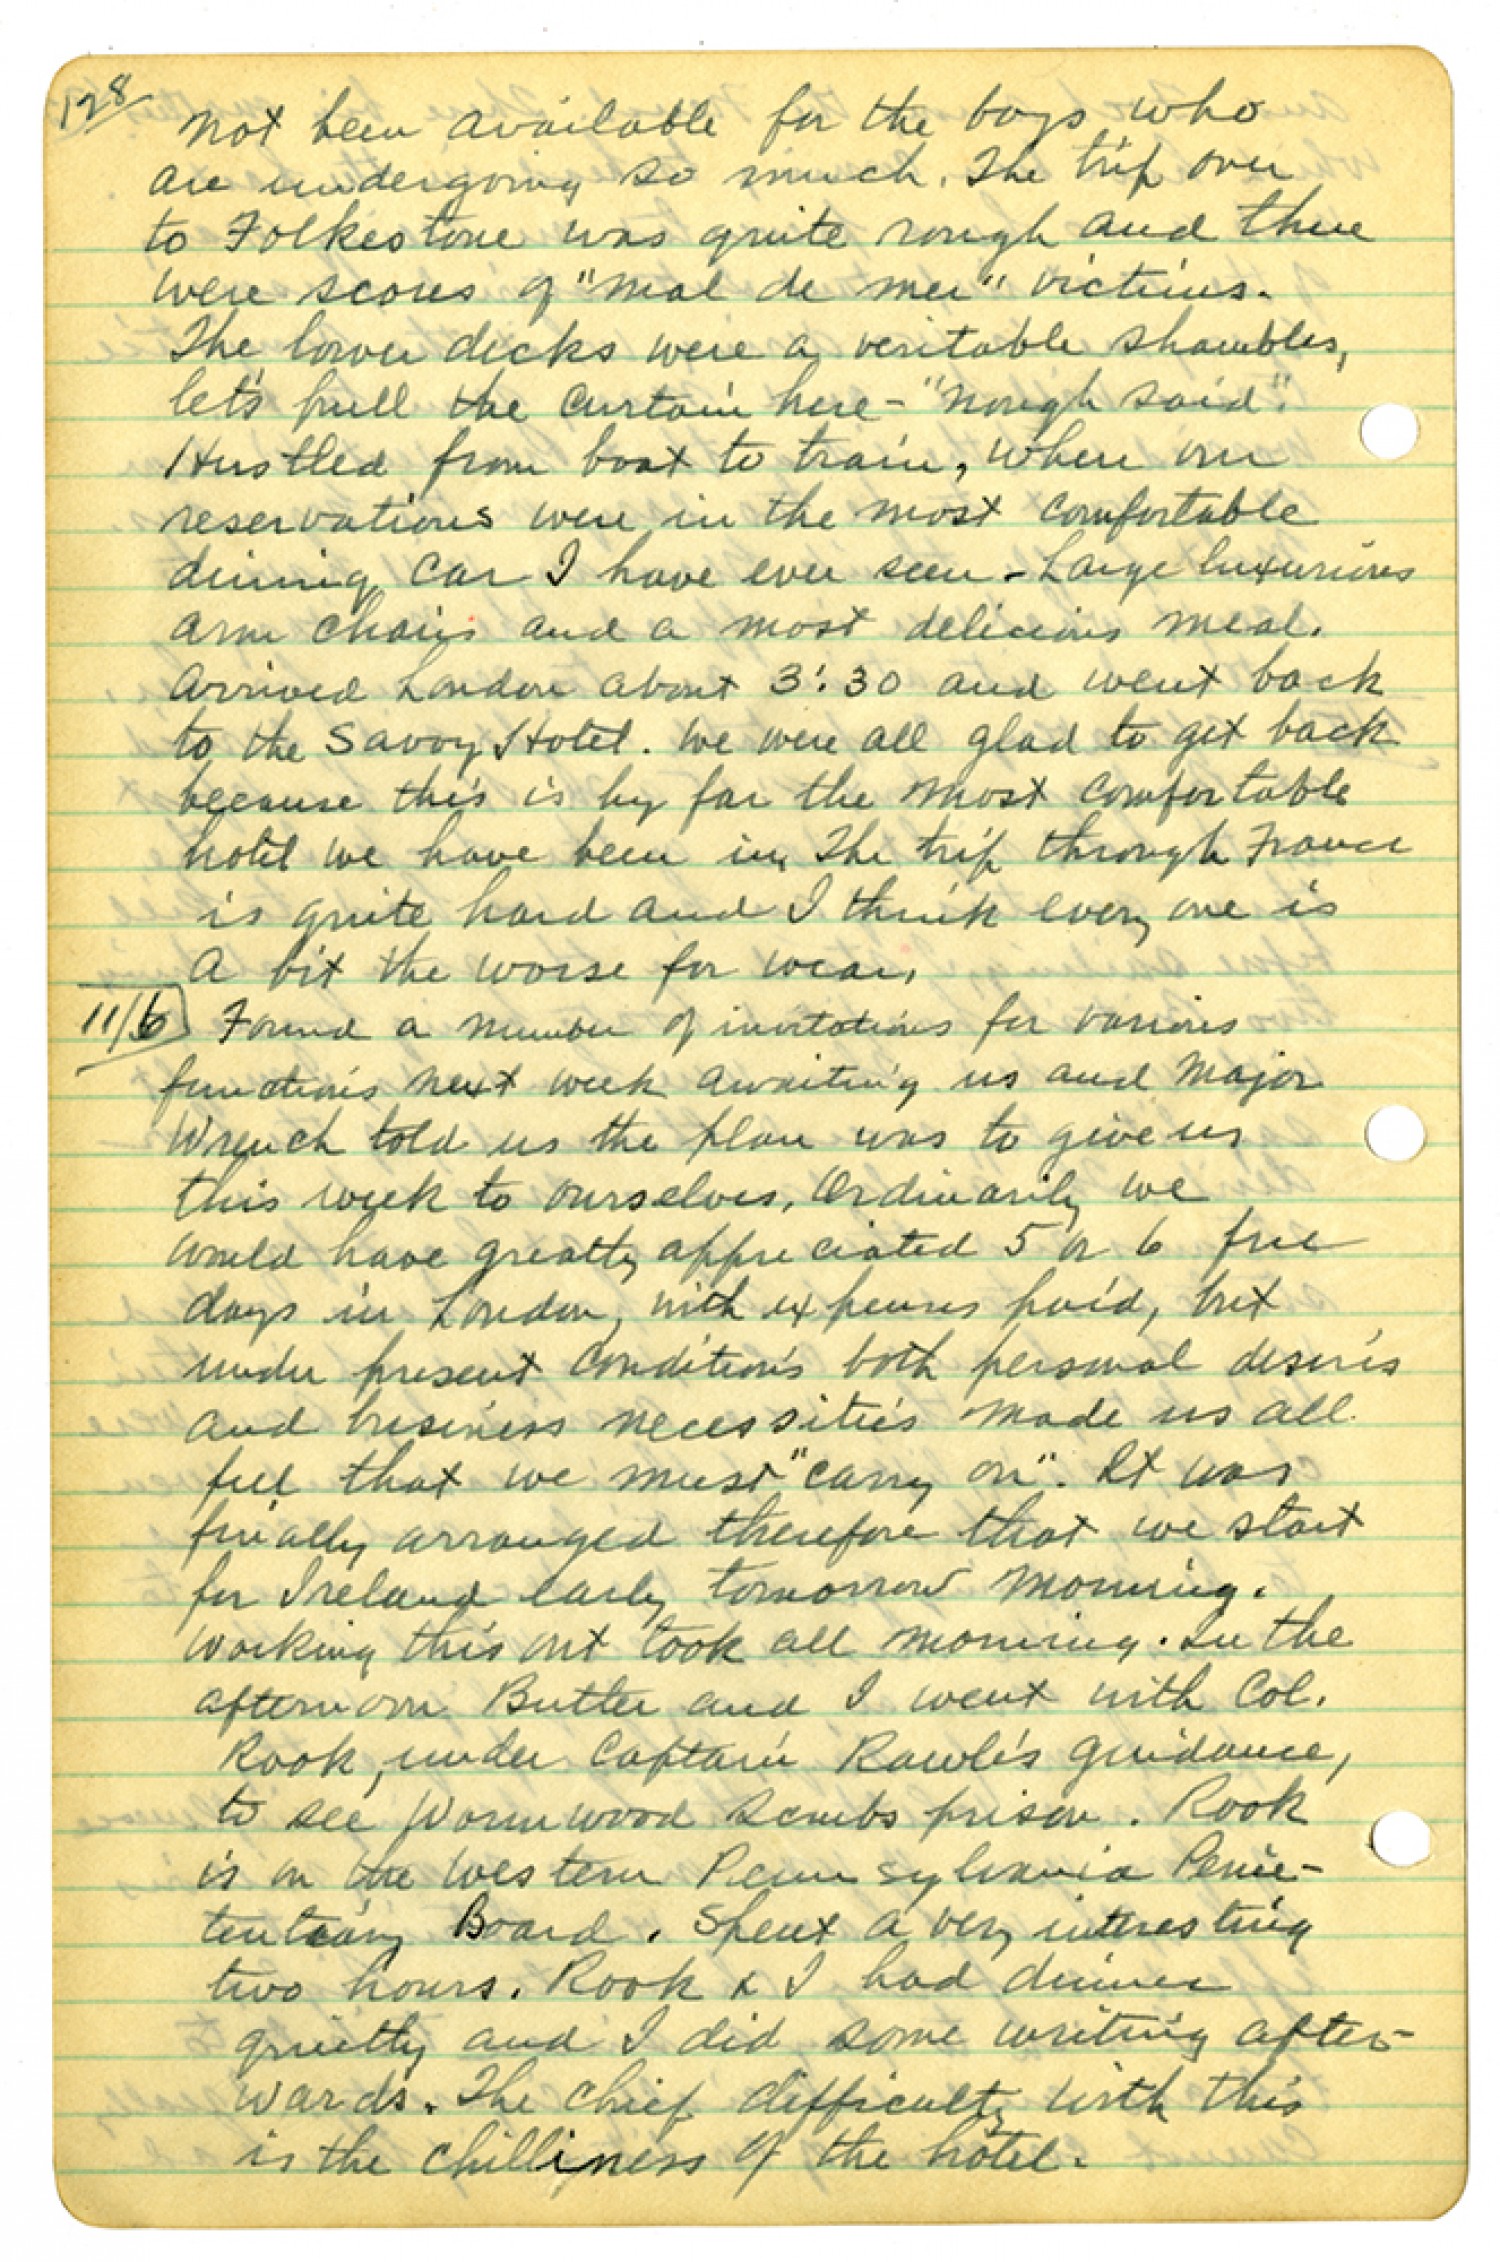 128
not been available for the boys who
are undergoing so much. The trip over
to Folkestone was quite rough and there
were scores of "mal de mer" victims.
The lower decks were a veritable shambles,
let's pull the curtain here - "nough said".
Hustled from boat to train, where our
reservations were in the most comfortable
dining car I have ever seen - Large luxurious
arm chairs and a most delicious meal.
Arrived London about 3:30 and went back
to the Savoy Hotel. We were all glad to get back
because this is by far the most comfortable
hotel we have been in. The trip through France
is quite hard and I think every one is
a bit the worse for wear.
11/6 Found a number of invitations for various
functions next week awaiting us and Major
Wrench told us the plan was to give us
this week to ourselves. Ordinarily we
would have greatly appreciated 5 or 6 free
days in London, with expenses paid, but
under present conditions both personal desires
and business necessities made us all
feel that we must "carry on". It was
finally arranged therefore that we start
for Ireland early tomorrow morning.
Working this out took all morning. In the
afternoon Butler and I went with Col.
Rook, under Captain Rawle's guidance,
to see Wormwood Scrubs prison. Rook
is on the Western Pennsylvania Penie-
tentiary Board. Spent a very interesting
two hours. Rook & I had dinner
quietly and I did some writing after-
wards. The chief difficulty with this
is the chilliness of the hotel.